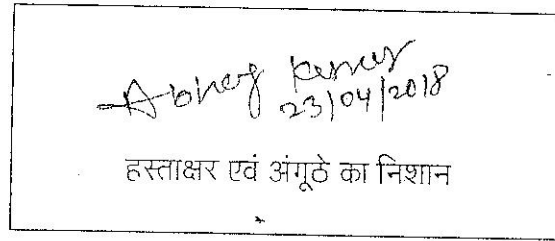 Abhay Kumar
23/04/2018
हस्ताक्षर एवं अंगूठे का निशान